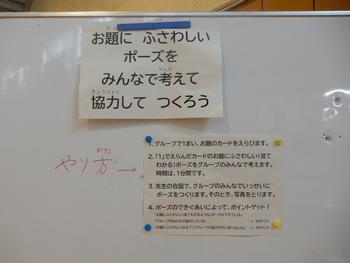 お題に ふさわしい
ポーズを
みんなで考えて
協力して つくろう
やり方→
1. グループで1まい、お題のカードをえらびます。
2. 「1」でえらんだカードのお題にふさわしい(見て
わかる)ポーズをグループのみんなで考えます。
時間は、1分間です。
3. 先生の合図で、グループのみんなでいっせいに
ポーズをつくります。そのとき、写真をとります。
4. ポーズのできぐあいによって、ポイントゲット!